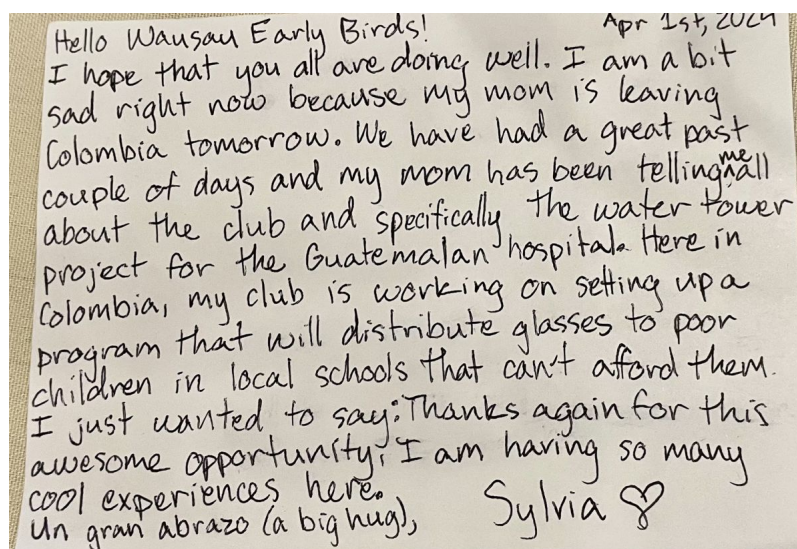 Apr 1st, 2024
Hello Wausau Early Birds!
I hope that you all are doing well. I am a bit
sad right now because my mom is leaving
Colombia tomorrow. We have had a great past
couple of days and my mom has been telling me all
about the club and specifically the water tower
project for the Guatemalan hospital. Here in
Colombia, my club is working on setting up a
program that will distribute glasses to poor
children in local schools that can't afford them.
I just wanted to say: Thanks again for this
awesome opportunity; I am having so many
cool experiences here.
Un gran abrazo (a big hug),
Sylvia